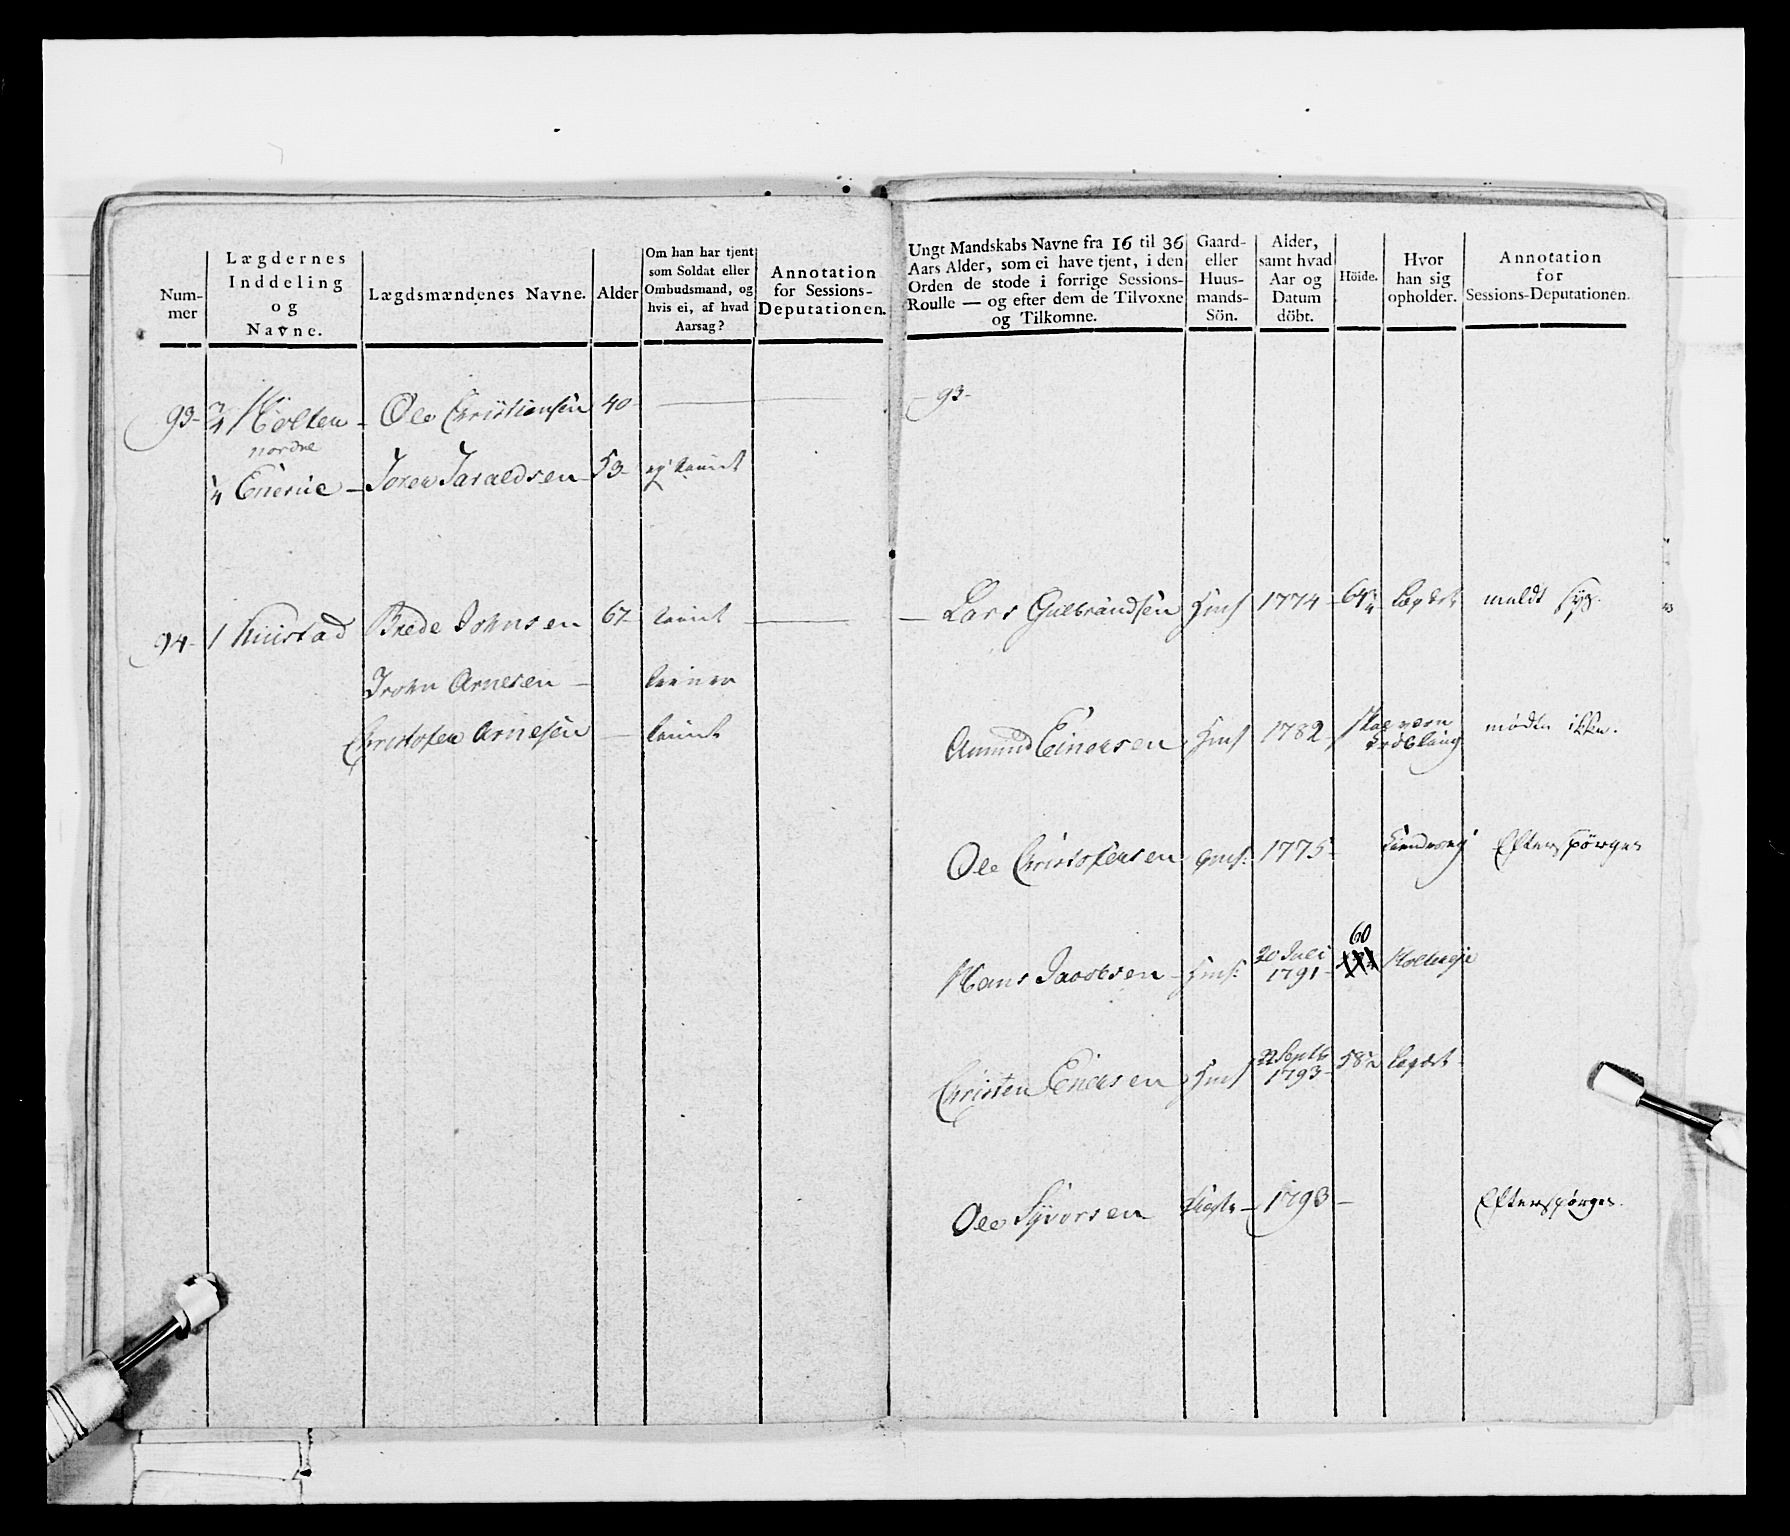 Num-
mer
Lægdernes
Inddeling
og
Navne.
Lægdsmændenes Navne.
Alder
Om han har tjent
som Soldat eller
Ombudsmand, og
hvis ei, af hvad
Aarsag?
Annotation
for Sessions-
Deputationen.
93- 3/4 Holten - Ole Christiensen 40-
nordre
1/4 Enerue - Joren Jaraldsen 53- ej tient
94- 1 Huustad Brede Johnsen 67 tient
Arnesen - tiener
Christofer Arnesen - tient
Ungt Mandskabs Navne fra 16 til 36
Aars Alder, som ei have tjent, i den
Orden de stode i forrige Sessions-
Roulle — og efter dem de Tilvoxne
og Tilkomne.
Gaard-
eller
Huus-
mands-
Sön.
Alder,
samt hvad
Aar og
Datum
döbt.
Höide.
Hvor
han sig
opholder.
Annotation
for
Sessions-Deputationen.
93-
Lars Gulbrandsen Hmf 1774 - Lægdet meldt syg.
Amund Einersen Hmf 1782 - mødte ikke.
Ole Christofersen Gmf: 1775 - Efterspørges
60
Hans Jacobsen - Hmf: 20 Juli
1791-
Christen Enersen Hmf 22 Septb
1793- Lægdet
Ole Syversen - 1793 - Efterspørges.